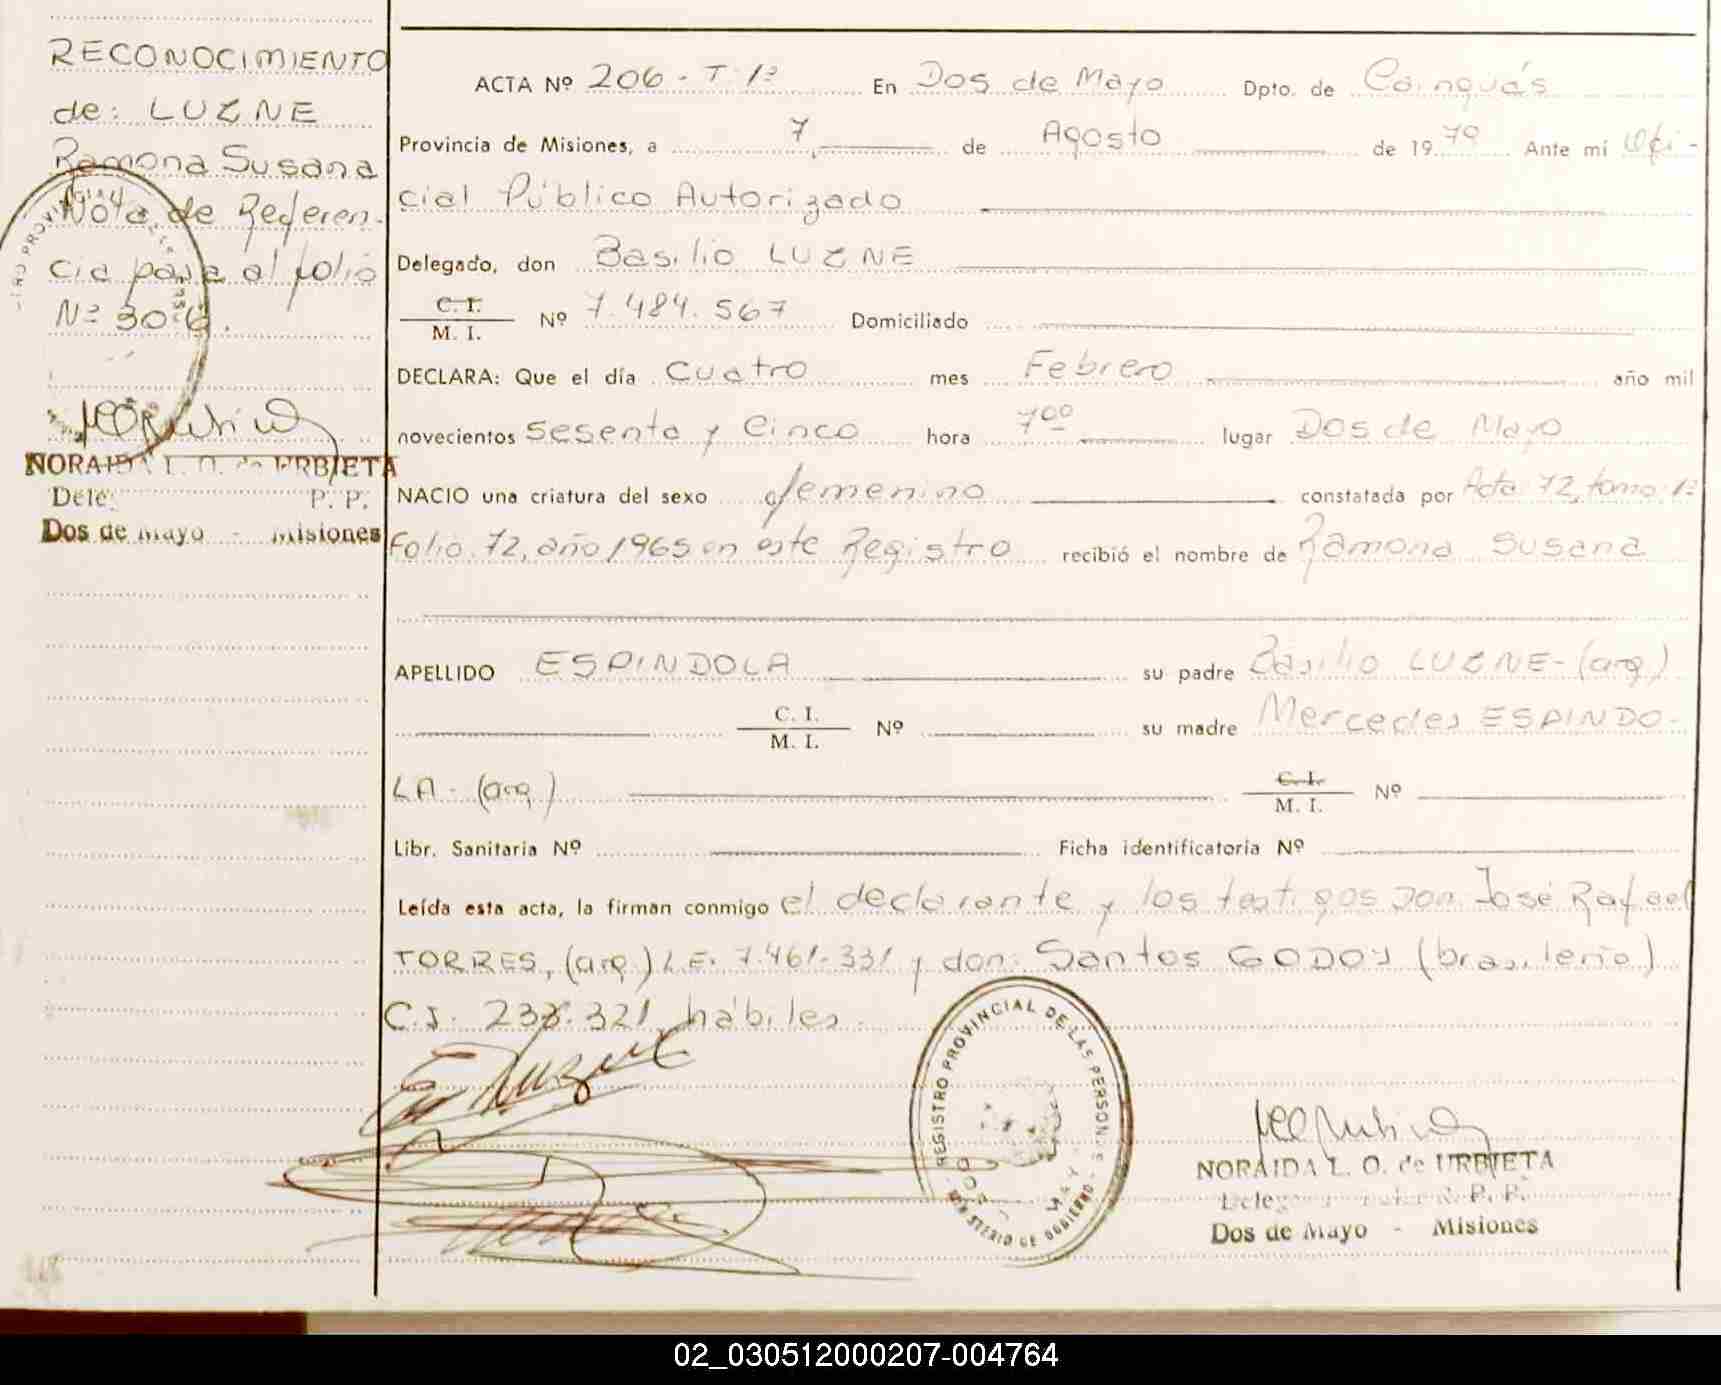 RECONOCIMIENTO
de: LUZNE
Ramona Susana
Nota de Referen-
cia pasa al folio
Nº 306.
NORAIDA L. O. de URBIETA
Dele P. P.
Dos de Mayo - Misiones
ACTA Nº 206 - T. 1º En Dos de Mayo Dpto. de Cainguás
Provincia de Misiones, a 7 de Agosto de 1979 Ante mi Ofi-
cial Público Autorizado
Delegado, don Basilio LUZNE
C. I.
M. I. Nº 7.484.567 Domiciliado
DECLARA: Que el día cuatro mes Febrero año mil
novecientos sesenta y cinco hora 7ºº lugar Dos de Mayo
NACIO una criatura del sexo femenino constatada por Acta 72, tomo 1º
Folio 72, año 1965 en este Registro recibió el nombre de Ramona Susana
APELLIDO ESPINDOLA su padre Basilio LUZNE - (arg)
C. I.
M. I. Nº su madre Mercedes ESPINDO-
LA - (arg) C. I.
M. I. Nº
Libr. Sanitaria Nº Ficha identificatoria Nº
Leída esta acta, la firman conmigo el declarante y los testigos Don José Rafael
TORRES, (arg.) L.E. 7.461.331 y don Santos GODOY (brasileño)
C.I. 321 hábiles
REGISTRO PROVINCIAL DE LAS PERSONAS
MINISTERIO DE GOBIERNO
DOS MAYO
NORAIDA L. O. de URBIETA
R. P. P.
Dos de Mayo - Misiones
02_030512000207-004764